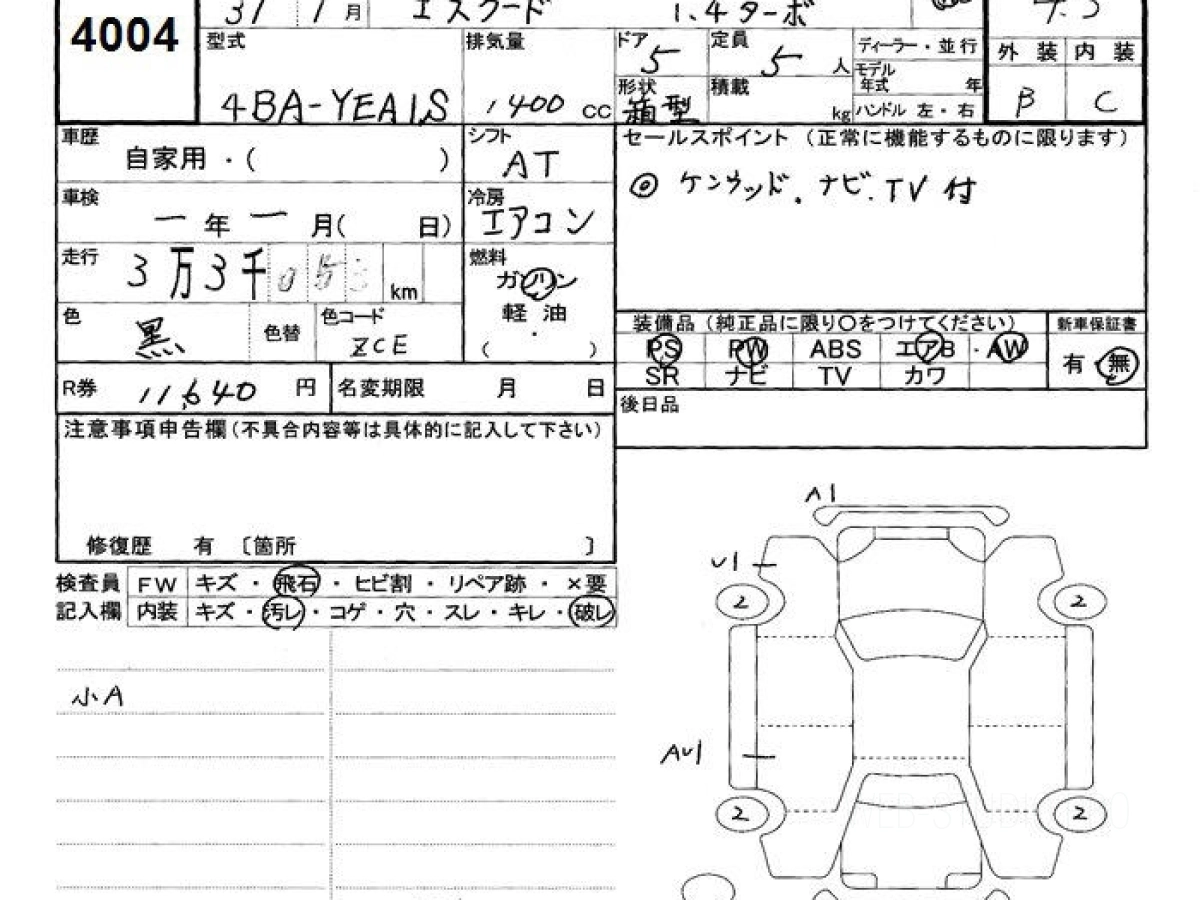 31 1月 エスクード 1.4ターボ
4004
型式 4BA-YEA1S
排気量 1400 cc
ドア 5 定員 5 人
形状 箱型 積載 kg
ディーラー・並行
モデル年式 年
ハンドル 左・右
外装 内装
B C
車歴 自家用・( )
シフト AT
セールスポイント (正常に機能するものに限ります)
◎ ケンウッド.ナビ.TV付
車検 ー年ー月( 日)
冷房 エアコン
走行 3万3千 km
燃料 ガソリン
軽油
・
( )
色 黒 色替 色コード ZCE
装備品 (純正品に限り○をつけてください) 新車保証書
PS PW ABS エアB ・AW 有・無
SR ナビ TV カワ
R券 11,640 円 名変期限 月 日
後日品
注意事項申告欄(不具合内容等は具体的に記入して下さい)
修復歴 有 〔箇所 〕
検査員 FW キズ・飛石・ヒビ割・リペア跡・×要
記入欄 内装 キズ・汚レ・コゲ・穴・スレ・キレ・破レ
小A
A1
U1
2 2
AU1
2 2